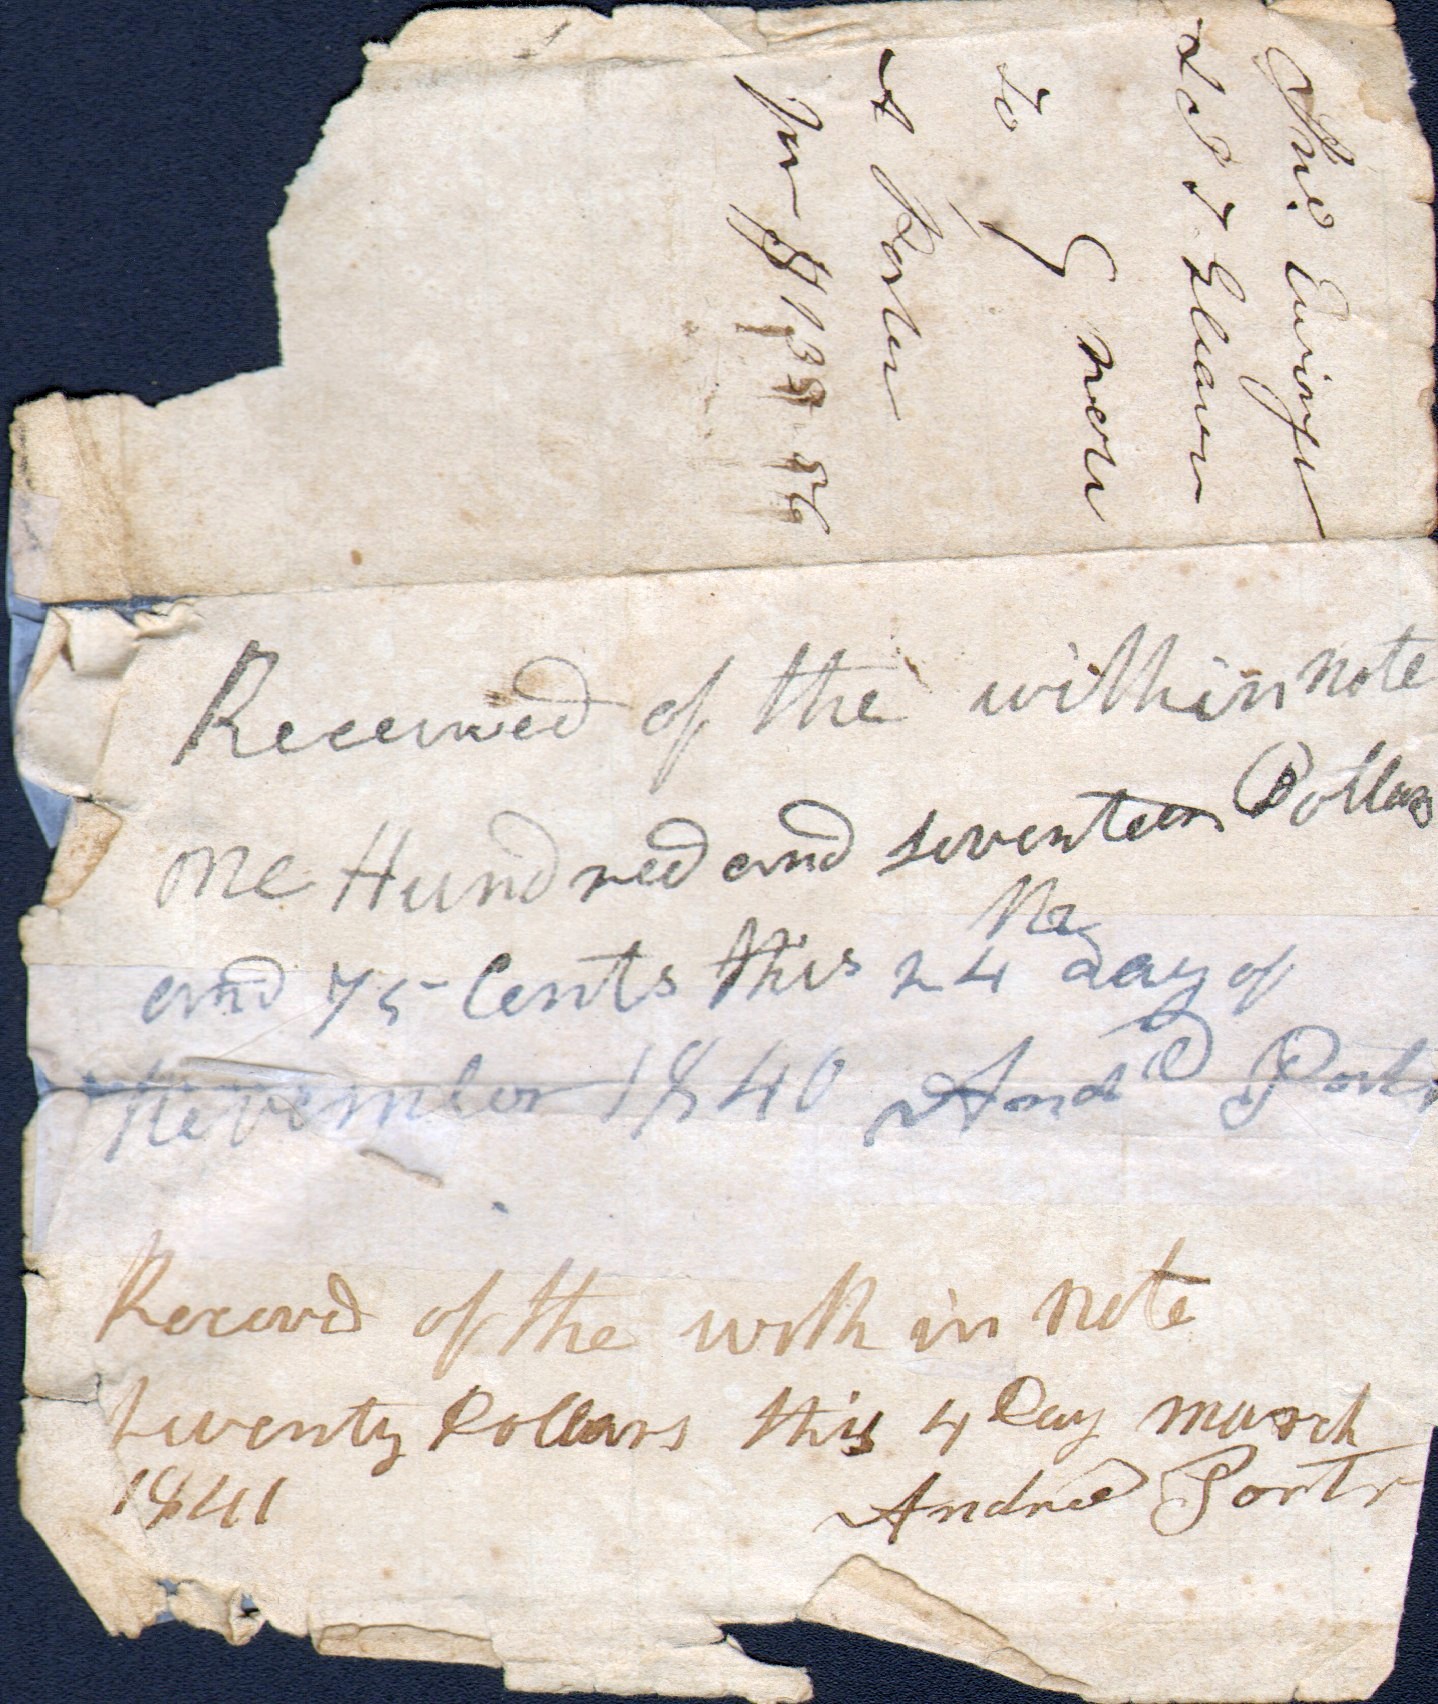 Jno Ewing
& J T Glenn
To } Note
A Porter
For $138-56
Received of the within note
one Hundred and seventeen Dollars
and 75 Cents this 24 day of
November 1840 And Porter
Receved of the with in note
twenty Dollars this 4 Day march
1841 Andrew Portr